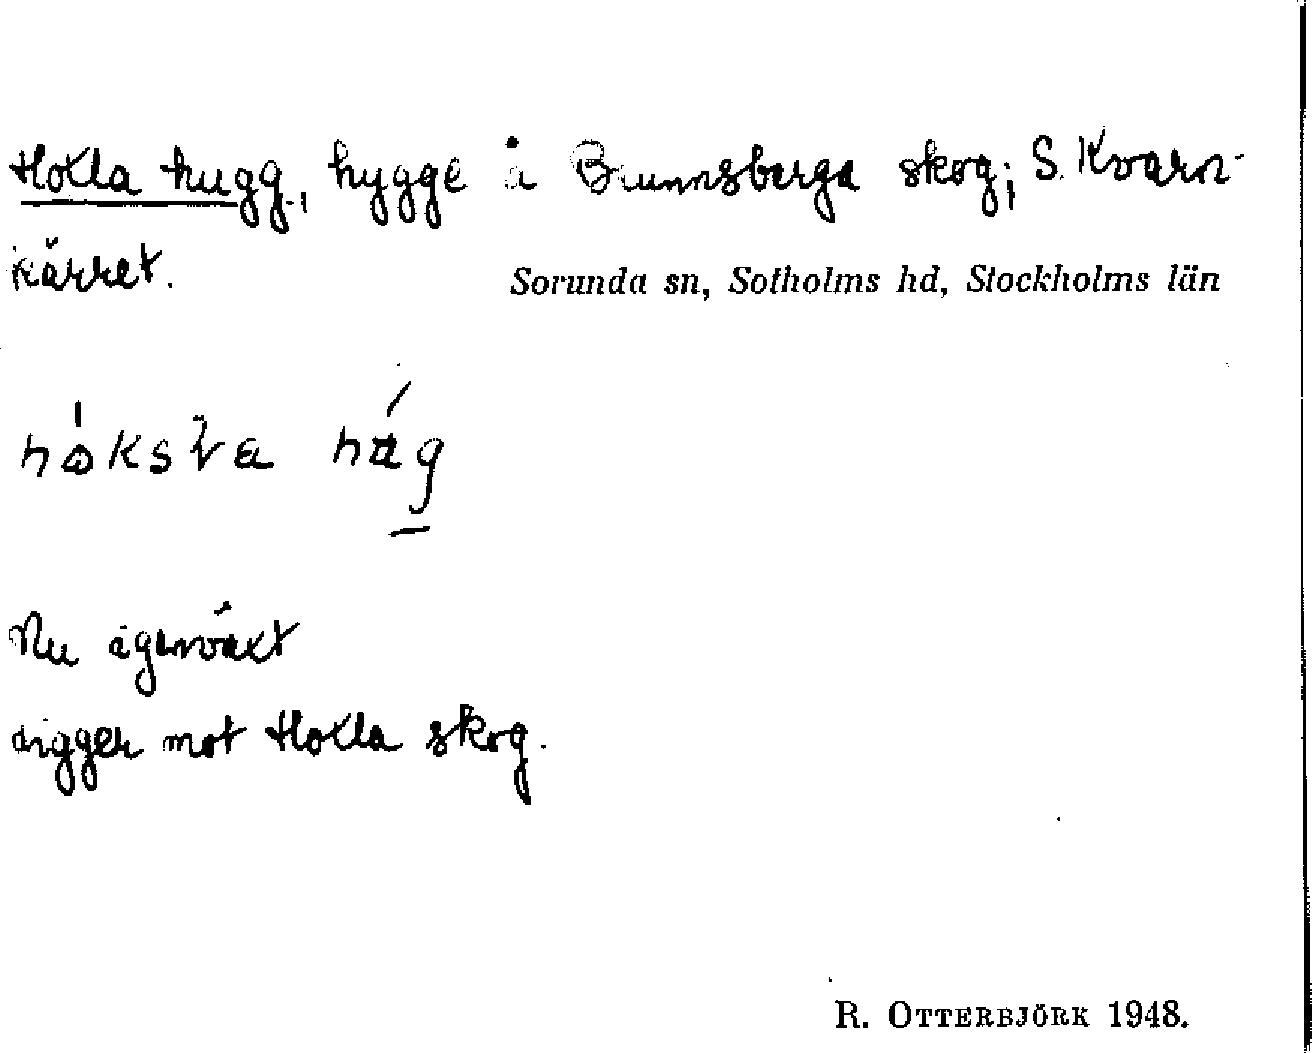 Hoxla hugg., hygge å Brunnsberga skog; S. Kvarn-
kärret.
Sorunda sn, Sotholms hd, Stockholms län
Nu igenväxt
ligger mot Hoxla skog.
R. OTTERBJÖRK 1948.